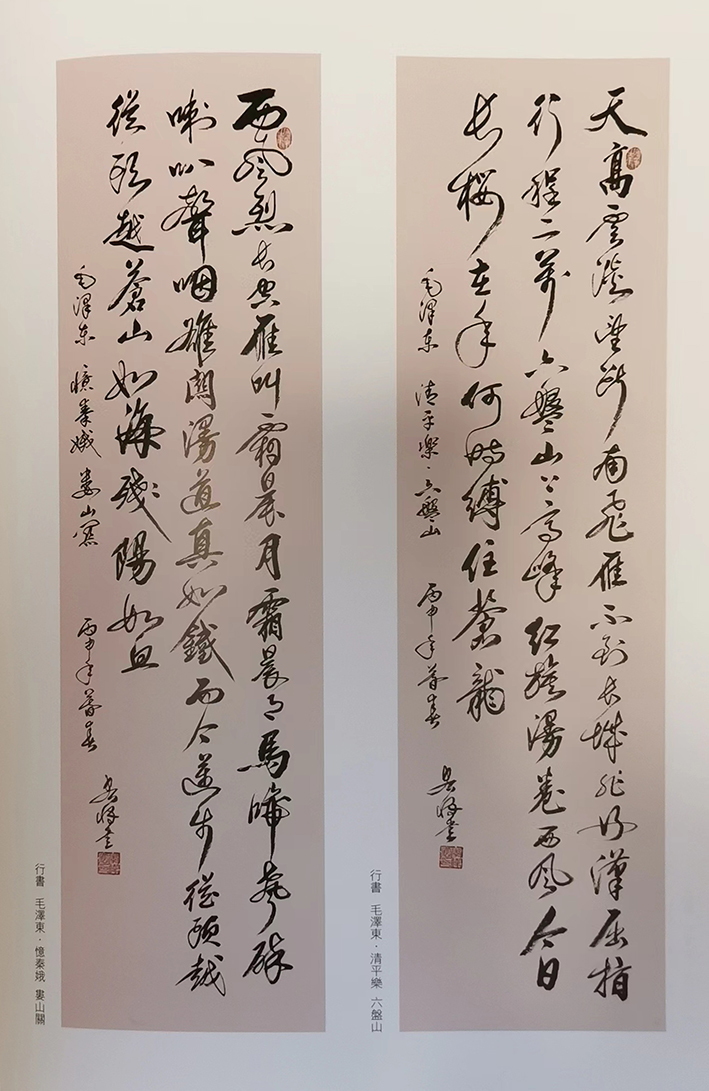 天高雲淡望斷南飛雁不到長城非好漢屈指
行程二萬六盤山上高峰紅旗漫卷西風今日
長纓在手何時縛住蒼龍
毛澤東 清平樂·六盤山 丙申年暮春
行書 毛澤東·清平樂 六盤山
西風烈長空雁叫霜晨月霜晨月馬蹄聲碎
喇叭聲咽雄關漫道真如鐵而今邁步從頭越
從頭越蒼山如海殘陽如血
毛澤東 憶秦娥 婁山關 丙申年暮春
行書 毛澤東·憶秦娥 婁山關